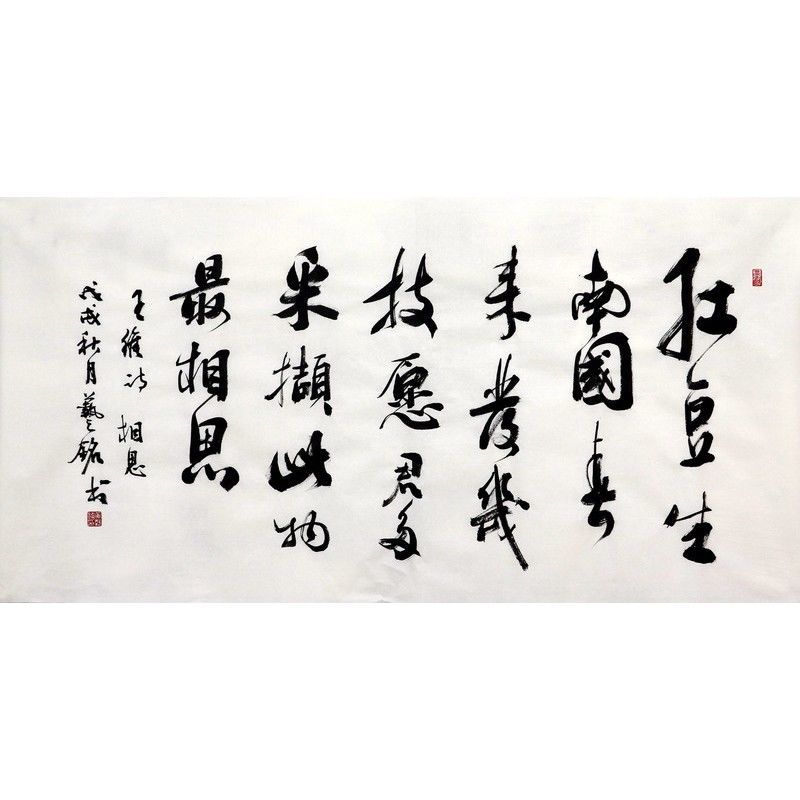 红豆生
南國春
来發幾
枝愿君多
采擷此物
最相思
王維诗 相思
戊戌秋月藝銘书